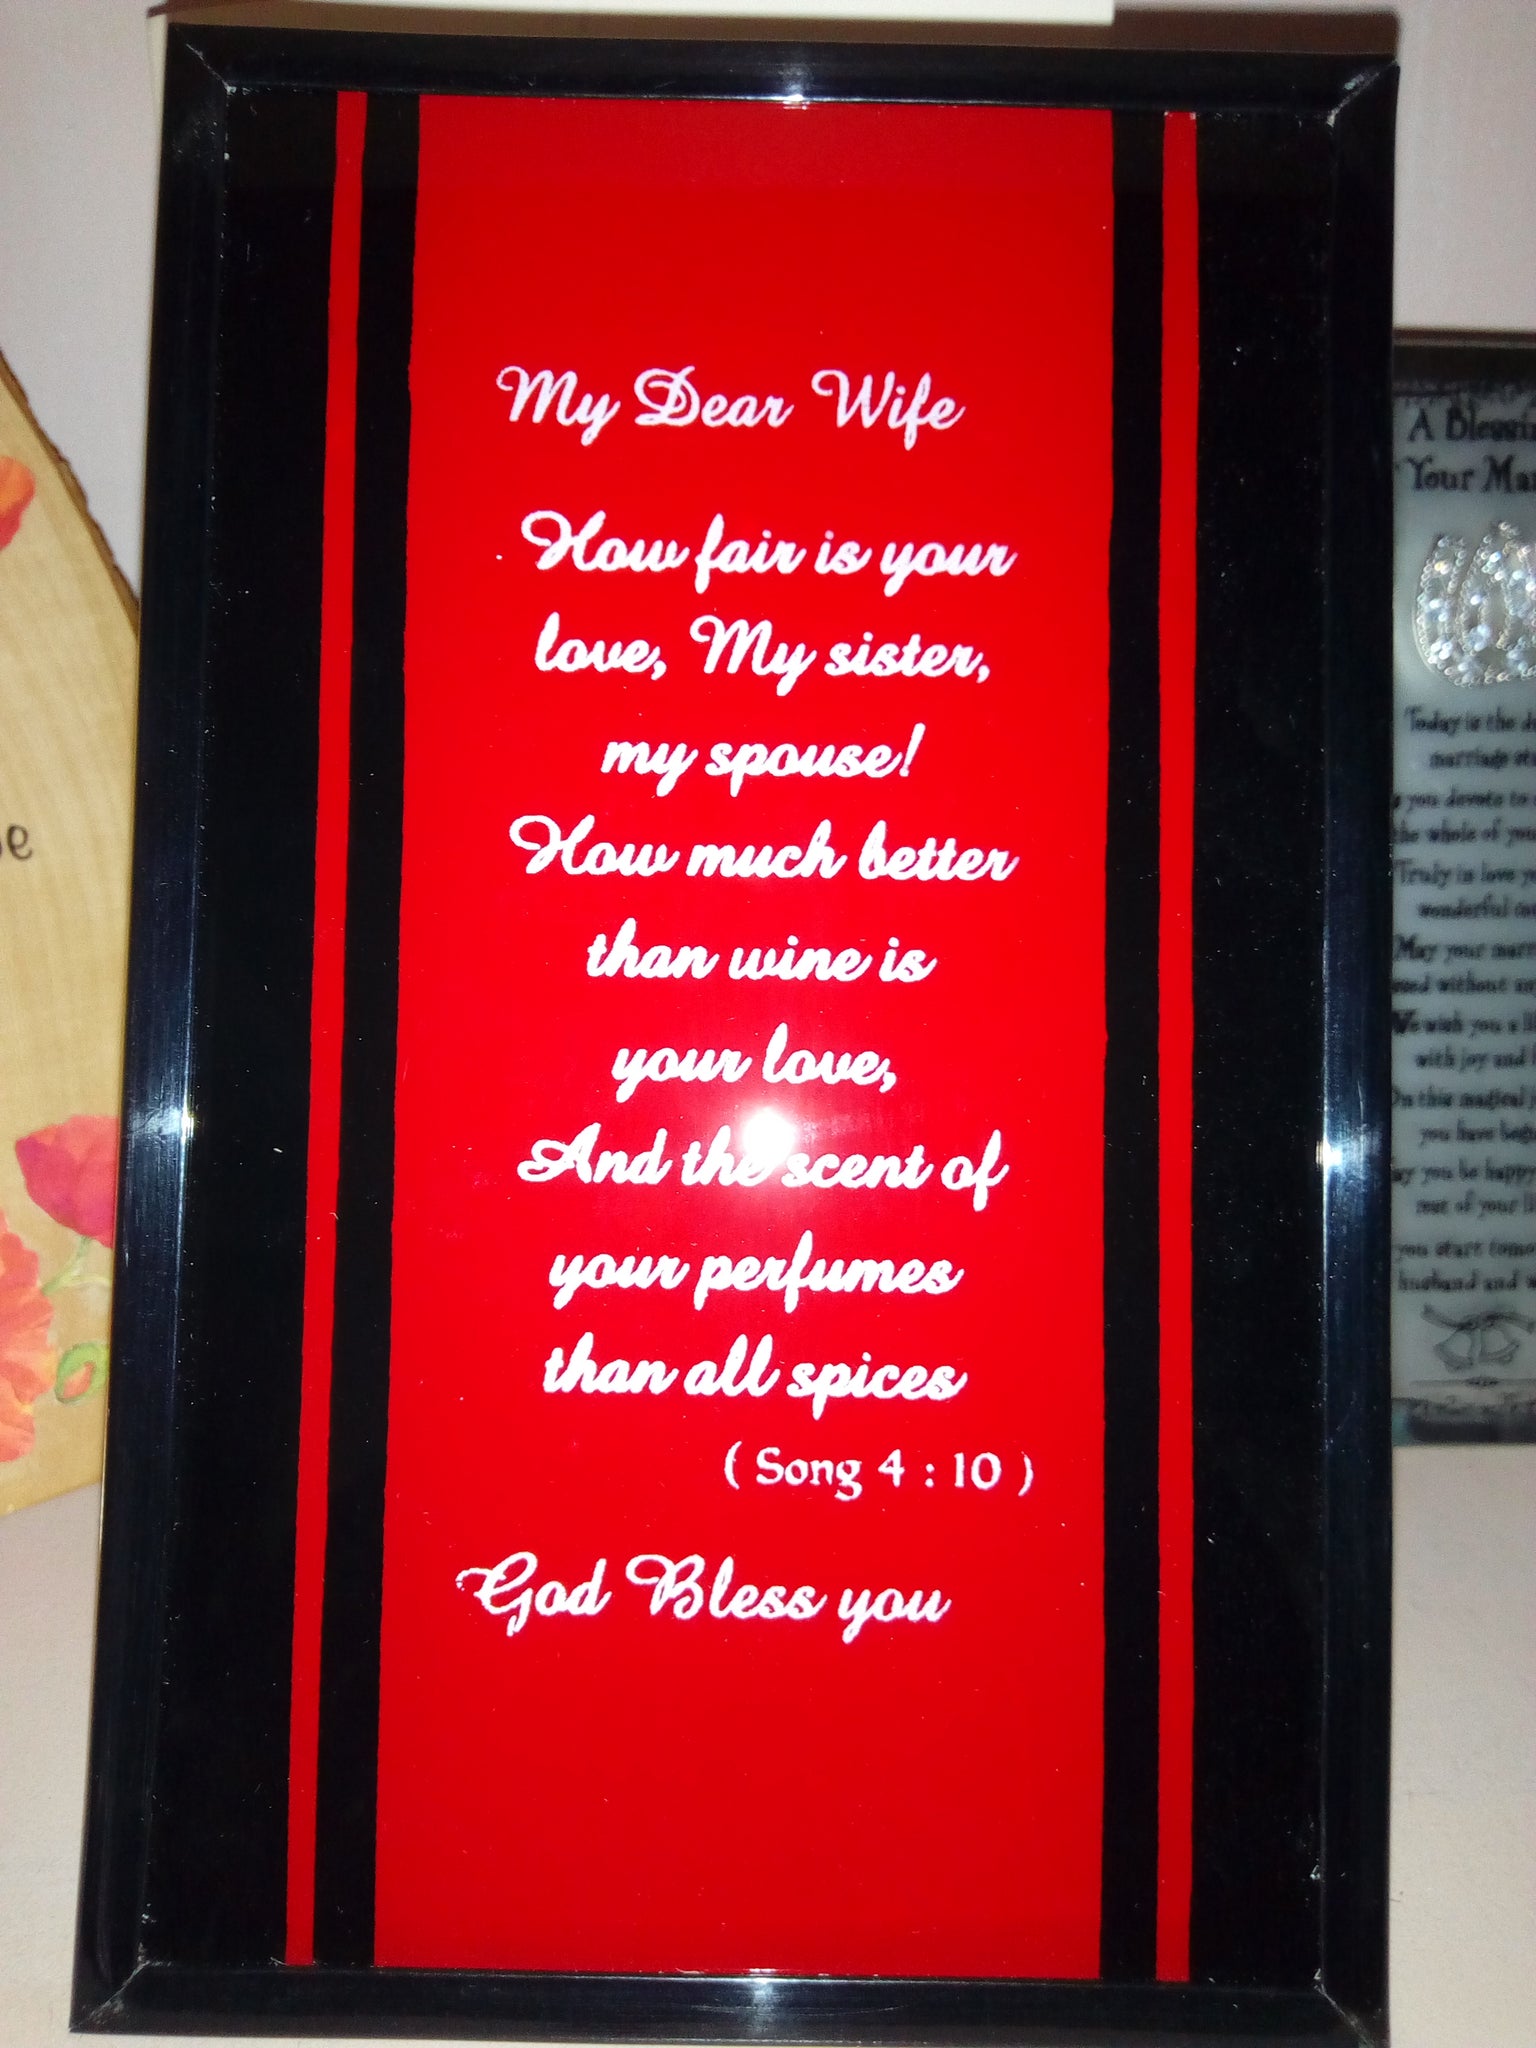 My Dear Wife
How fair is your
love, My sister,
my spouse!
How much better
than wine is
your love,
And the scent of
your perfumes
than all spices
( Song 4 : 10 )
God Bless you
A
Your
Today is the
marriage
you devote to
the whole of
Truly in love
wonderful
May your
without
We wish you a
with joy and
this magical
you have
you be happy
rest of your
you start
husband and